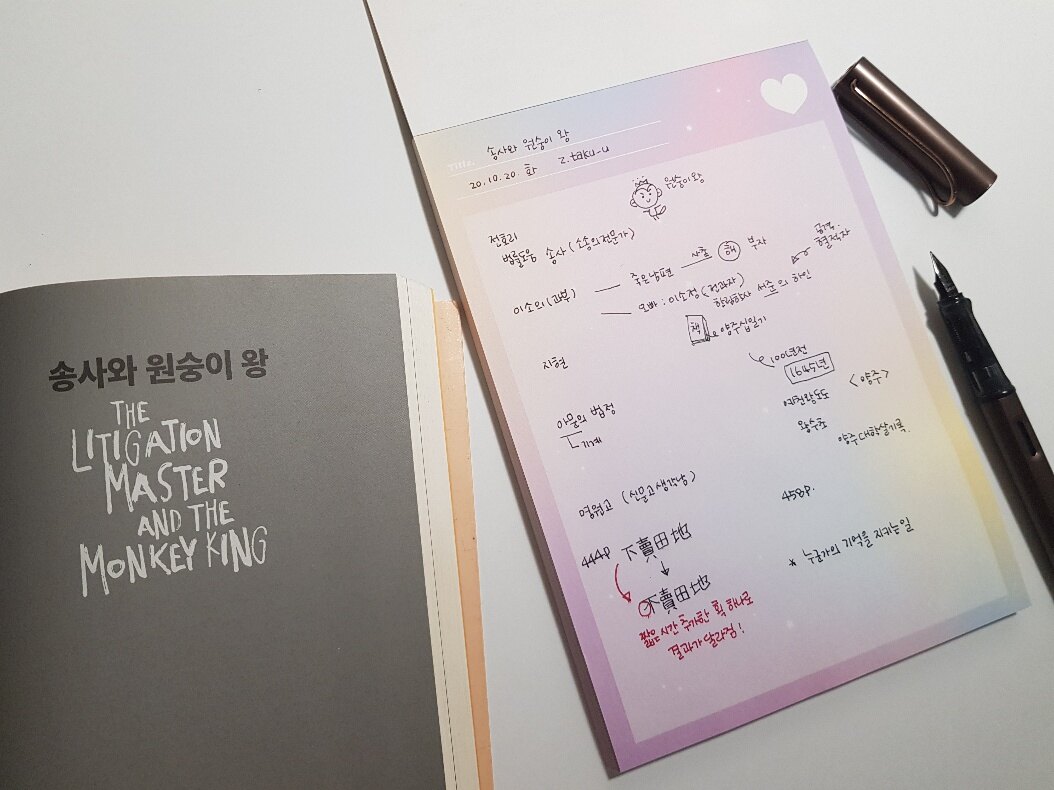 송사와 원숭이 왕
THE
LITIGATION
MASTER
AND THE
MONKEY KING
Title. 송사와 원숭이 왕
20.10.20 화 z.taku-u
원숭이왕
전호리
법률도움 송사 (소송의전문가)
이소의 (과부)
죽은남편 사촌 해 부자
오빠 : 이소정 (전과자)
한림학사 서준의 하인
공격.
혈적자
책 양주십일기
지현
100년전
1645년
<양주>
아문의 법정
기계
왕수초
양주대학살기록.
명원고 (신문고생각남)
458p.
444p 下賣田地
不賣田地
짧은 시간 추가한 획 하나로
결과가 달라짐!
* 누군가의 기억을 지키는일